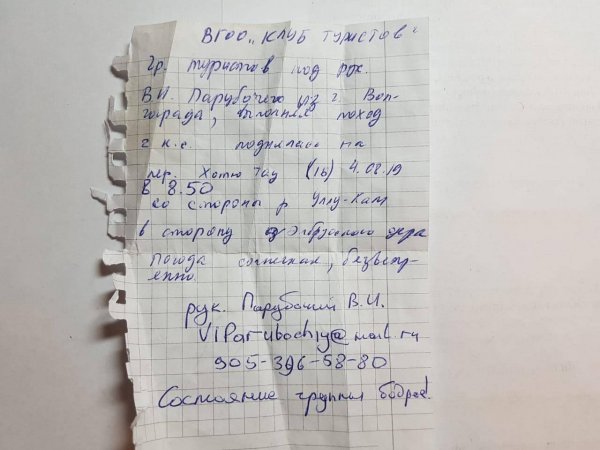 ВГОО „КЛУБ ТУРИСТОВ"
Гр. туристов под рук.
В.И. Парубочего из г. Вол-
гограда, поход
2 к.с. поднялась на
пер. Хотю Тау (1б) 4.08.19
в 8.50
со стороны р Уллу-Кам
в сторону Эльбрусского
Погода солнечная, безветр-
енно
рук. Парубочий В.И.
VIParubochiy@mail.ru
905-396-58-80
Состояние группы бодрое!